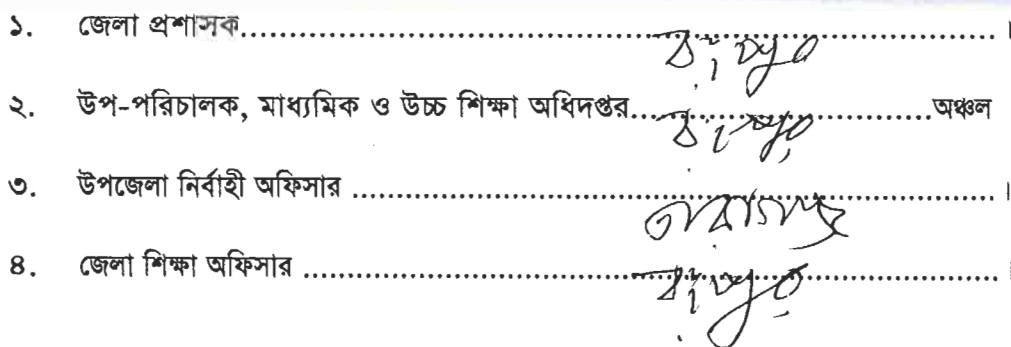 ১. জেলা প্রশাসক.......রংপুর....... ।
২. উপ-পরিচালক, মাধ্যমিক ও উচ্চ শিক্ষা অধিদপ্তর.......রংপুর.......অঞ্চল
৩. উপজেলা নির্বাহী অফিসার .......তারাগঞ্জ....... ।
৪. জেলা শিক্ষা অফিসার .......রংপুর....... ।